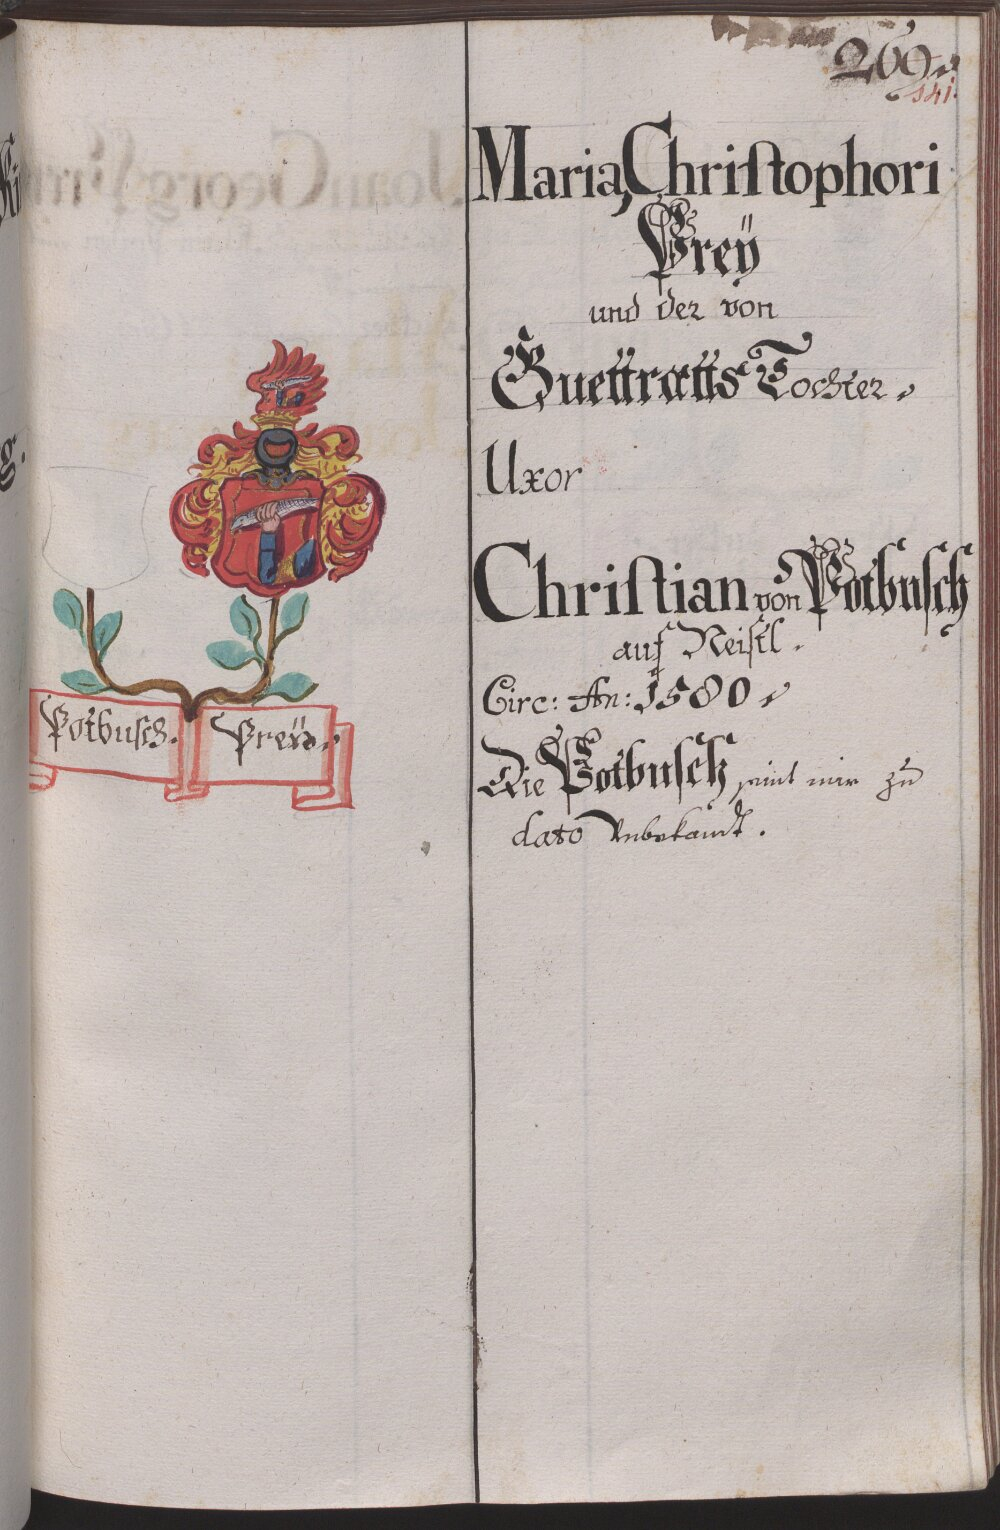 269.
141.
Maria, Christophori
Preÿ
und der von
Guettratts Tochter.
Uxor
Christian von Potbusch
auf Neistl.
Circ: An: 1580.
Die Potbusch seint mir zu
dato Unbekandt.
Potbusch.
Preÿ.